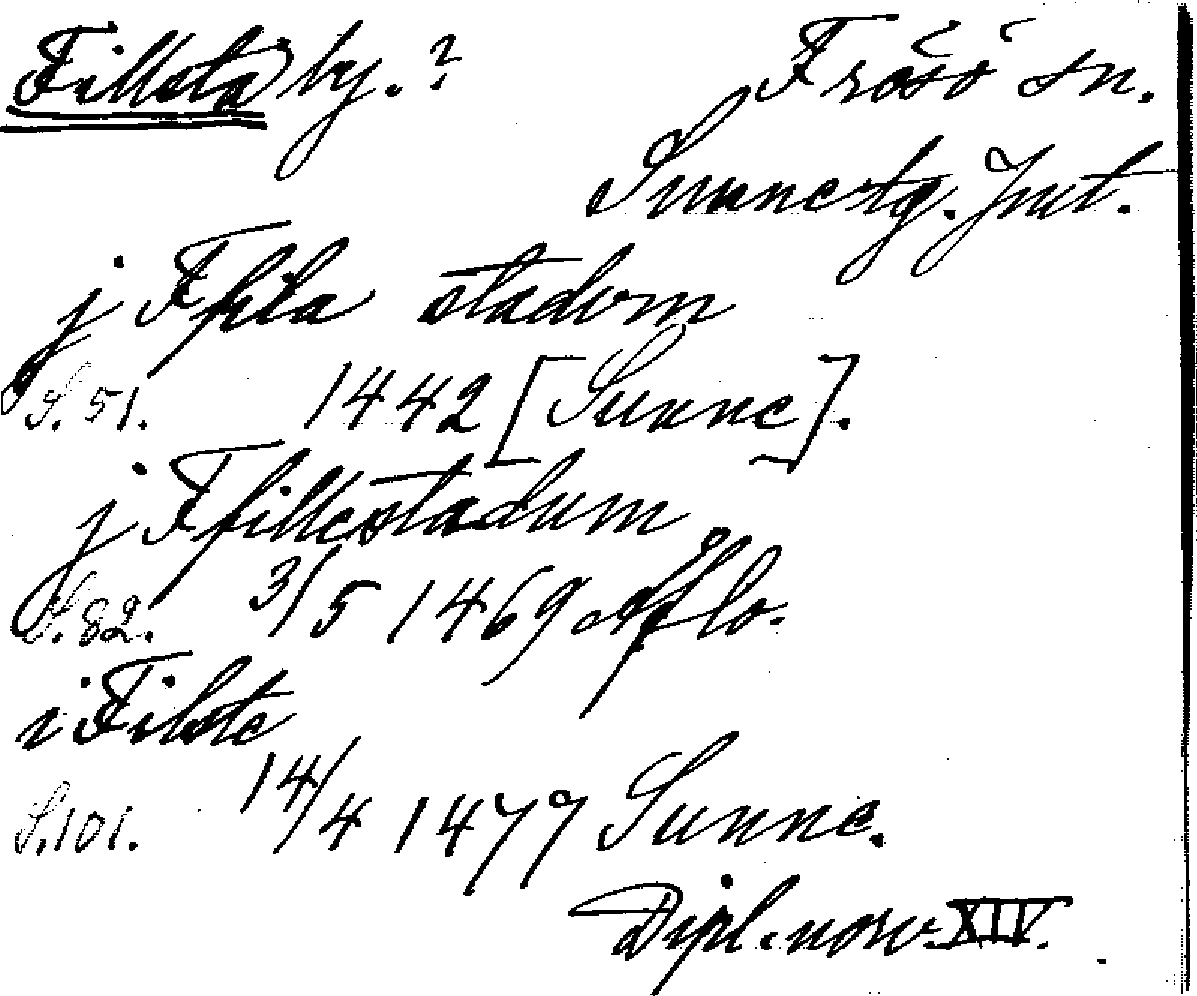 Fillsta by. ? Frösö sn.
Sunnestg. Jmt.
j Ffila stadom
S. 51. 1442 [Sunne].
j Ffillestadum
S. 82. 3/5 1469 Aflo.
i Filste
S. 101. 14/4 1477 Sunne.
Dipl. norv. XIV.